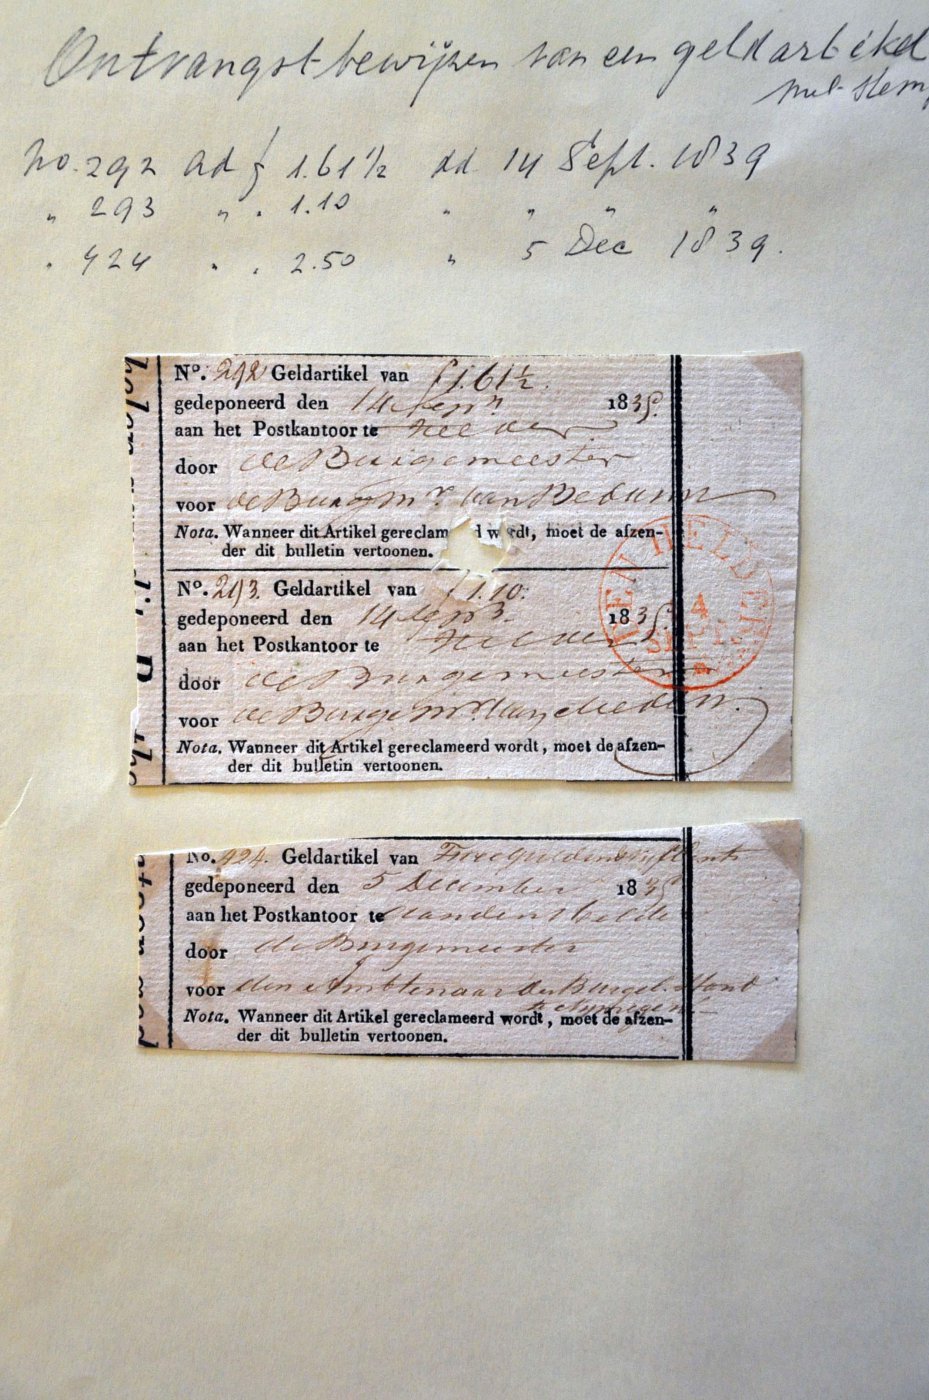 Ontvangst-bewijzen van een geldartikel
met stemp
No. 292 ad f 1.61½ dd 14 Sept. 1839
" 293 " . 1.10 " " " "
. 424 . . 2.50 " 5 Dec 1839.
No. 292 Geldartikel van f 1.61½.
gedeponeerd den 14 Sepr 1839.
aan het Postkantoor te Helder
door de Burgemeester
voor de Burgmr. van Bedum
Nota. Wanneer dit Artikel gereclam d wordt, moet de afzen-
der dit bulletin vertoonen.
No. 293. Geldartikel van f 1.10.
gedeponeerd den 14 Sepr. 1839.
aan het Postkantoor te Helder
door de Burgemeester
voor de Burgemr. van
Nota. Wanneer dit Artikel gereclameerd wordt, moet de afzen-
der dit bulletin vertoonen.
DEN HELDER
14
SEPT
No. 424. Geldartikel van Twee gulden vyft cents
gedeponeerd den 5 December 1839
aan het Postkantoor te aanden Helder
door de Burgemeester
voor den Ambtenaar den Burgel. Stand
te
Nota. Wanneer dit Artikel gereclameerd wordt, moet de afzen-
der dit bulletin vertoonen.